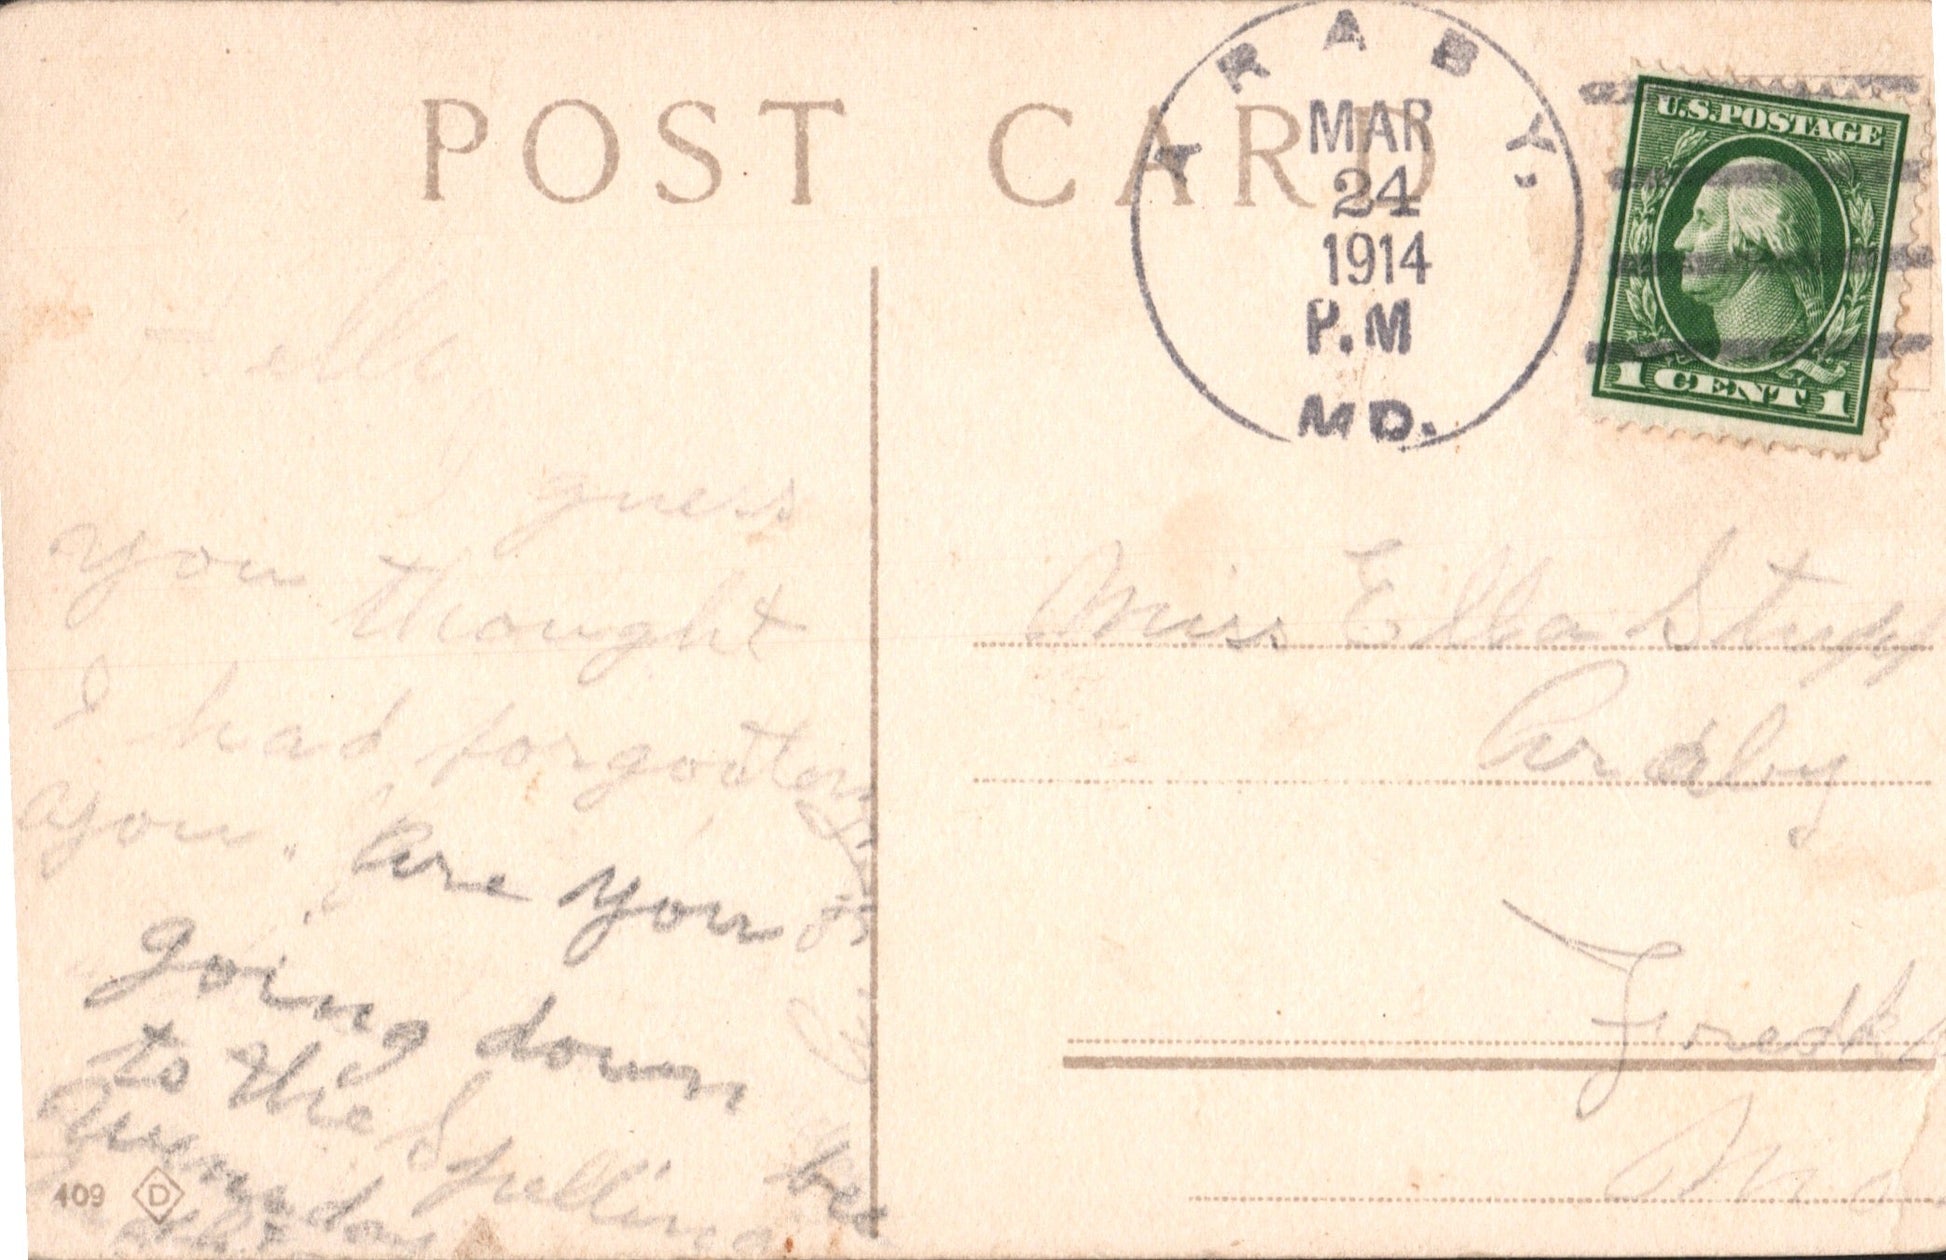 POST CARD
ARABY,
MAR
24
1914
P.M
MD.
U.S.POSTAGE
1 CENT 1
Hello
I guess
you thought
I had forgotten
you. Are you
going down
to the Spelling bee
409 D
Miss Ella Stupp
Araby
Fredk
Md